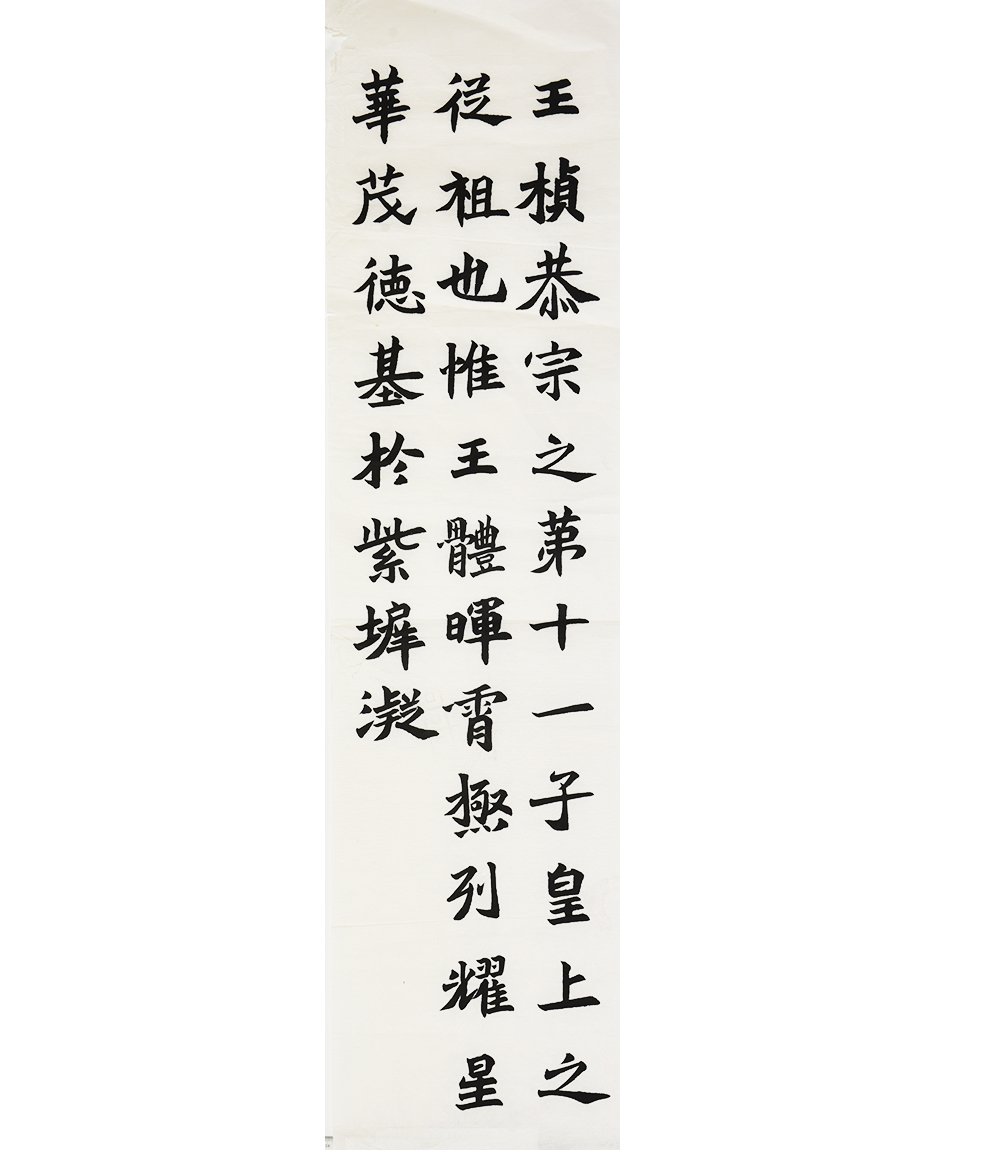 王楨恭宗之苐十一子皇上之
從祖也惟王體暉霄極列耀星
華茂德基於紫墀凝